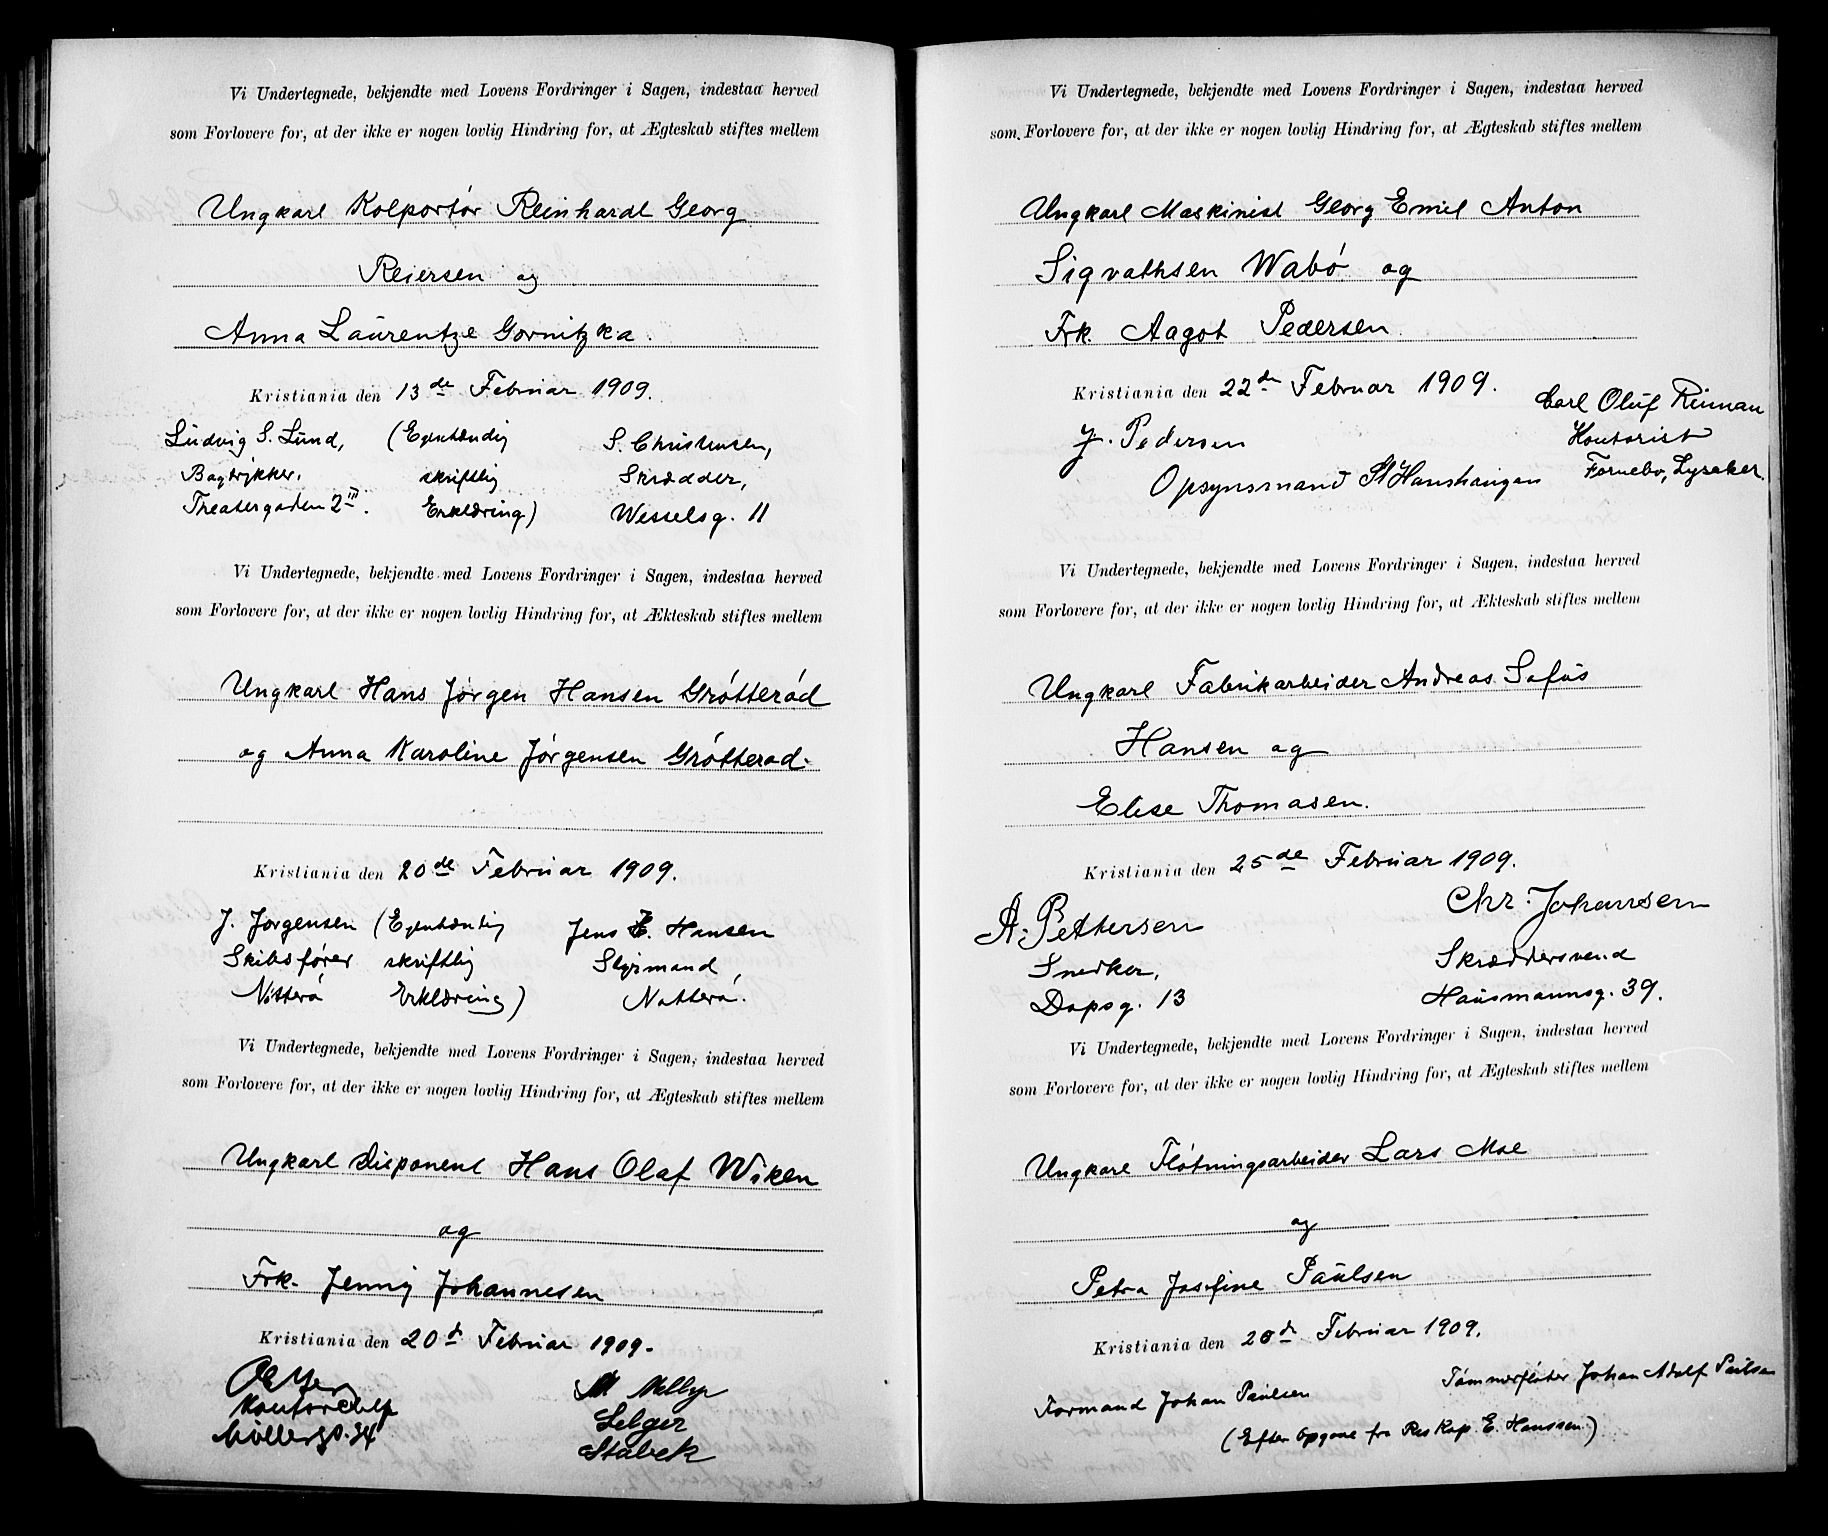 Vi Undertegnede, bekjendte med Lovens Fordringer i Sagen, indestaa herved
som Forlovere for, at der ikke er nogen lovlig Hindring for, at Ægteskab stiftes mellem
Ungkarl Kolportör Reinhardt Georg
Reiersen og
Anna Laurentze Gornitzka.
Kristiania den 13de Februar 1909.
Ludvig S. Lund, (Egenhændig S. Christensen,
Bogtrykker, skriftlig Skrædder,
Theatergaden 2III. Erklæring) Wesselsg. 11
Vi Undertegnede, bekjendte med Lovens Fordringer i Sagen, indestaa herved
som Forlovere for, at der ikke er nogen lovlig Hindring for, at Ækteskab stiftes mellem
Ungkarl Hans Jörgen Hansen Grötteröd
og Anna Karoline Jörgensen Grötterød.
Kristiania den 20de Februar 1909.
J. Jörgensen (Egenhændig Jens E. Hansen
Skibsförer skriftlig Styrmand
Nötterö Erklæring) Nötterö.
Vi Undertegnede, bekjendte med Lovens Fordringer i Sagen, indestaa herved
som Forlovere for, at der ikke er nogen lovlig Hindring for, at Ægteskab stiftes mellem
Ungkarl Disponent Hans Olaf Wiken
og
Frk. Jenny Johannesen
Kristiania den 20d Februar 1909.
M Melbye
Kontorchef Selger
Möllergd. 34 Stabæk
Vi Undertegnede, bekjendte med Lovens Fordringer i Sagen, indestaa herved
som Forlovere for, at der ikke er nogen lovlig Hindring for, at Ægteskab stiftes mellem
Ungkarl Maskinist Georg Emil Anton
Sigvathsen Wabö og
Frk. Aagot Pedersen
Kristiania den 22de Februar 1909.
J. Pedersen Carl Oluf
Opsynsmand St Hanshaugen Kontorist
Fornebo, Lysaker.
Vi Undertegnede, bekjendte med Lovens Fordringer i Sagen, indestaa herved
som Forlovere for, at der ikke er nogen lovlig Hindring for, at Ækteskab stiftes mellem
Ungkarl Fabrikarbeider Andreas Sofus
Hansen og
Elise Thomasen.
Kristiania den 25de Februar 1909.
A. Pettersen Chr. Johansen
Snedker, Skræddersvend
Dopsg. 13 Hausmannsg. 39.
Vi Undertegnede, bekjendte med Lovens Fordringer i Sagen, indestaa herved
som Forlovere for, at der ikke er nogen lovlig Hindring for, at Ægteskab stiftes mellem
Ungkarl Flötningsarbeider Lars Moe
og
Petra Josefine Paulsen
Kristiania den 26de Februar 1909.
Formand Johan Paulsen Tömmerflöter Johan Adolf Paulsen
(Efter Opgave fra Res Kap. E. Hanssen.)